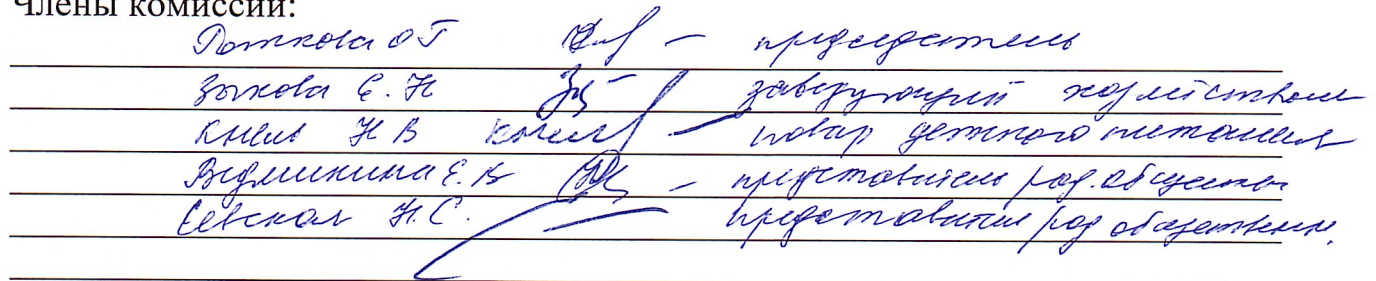 Члены комиссии:
О Г – председатель
Зыкова Е. Н – заведующий хозяйством
Кнель Н В – повар детского питания
Е. В – представитель род. общественн
Севская Н. С. – представитель род общественн.